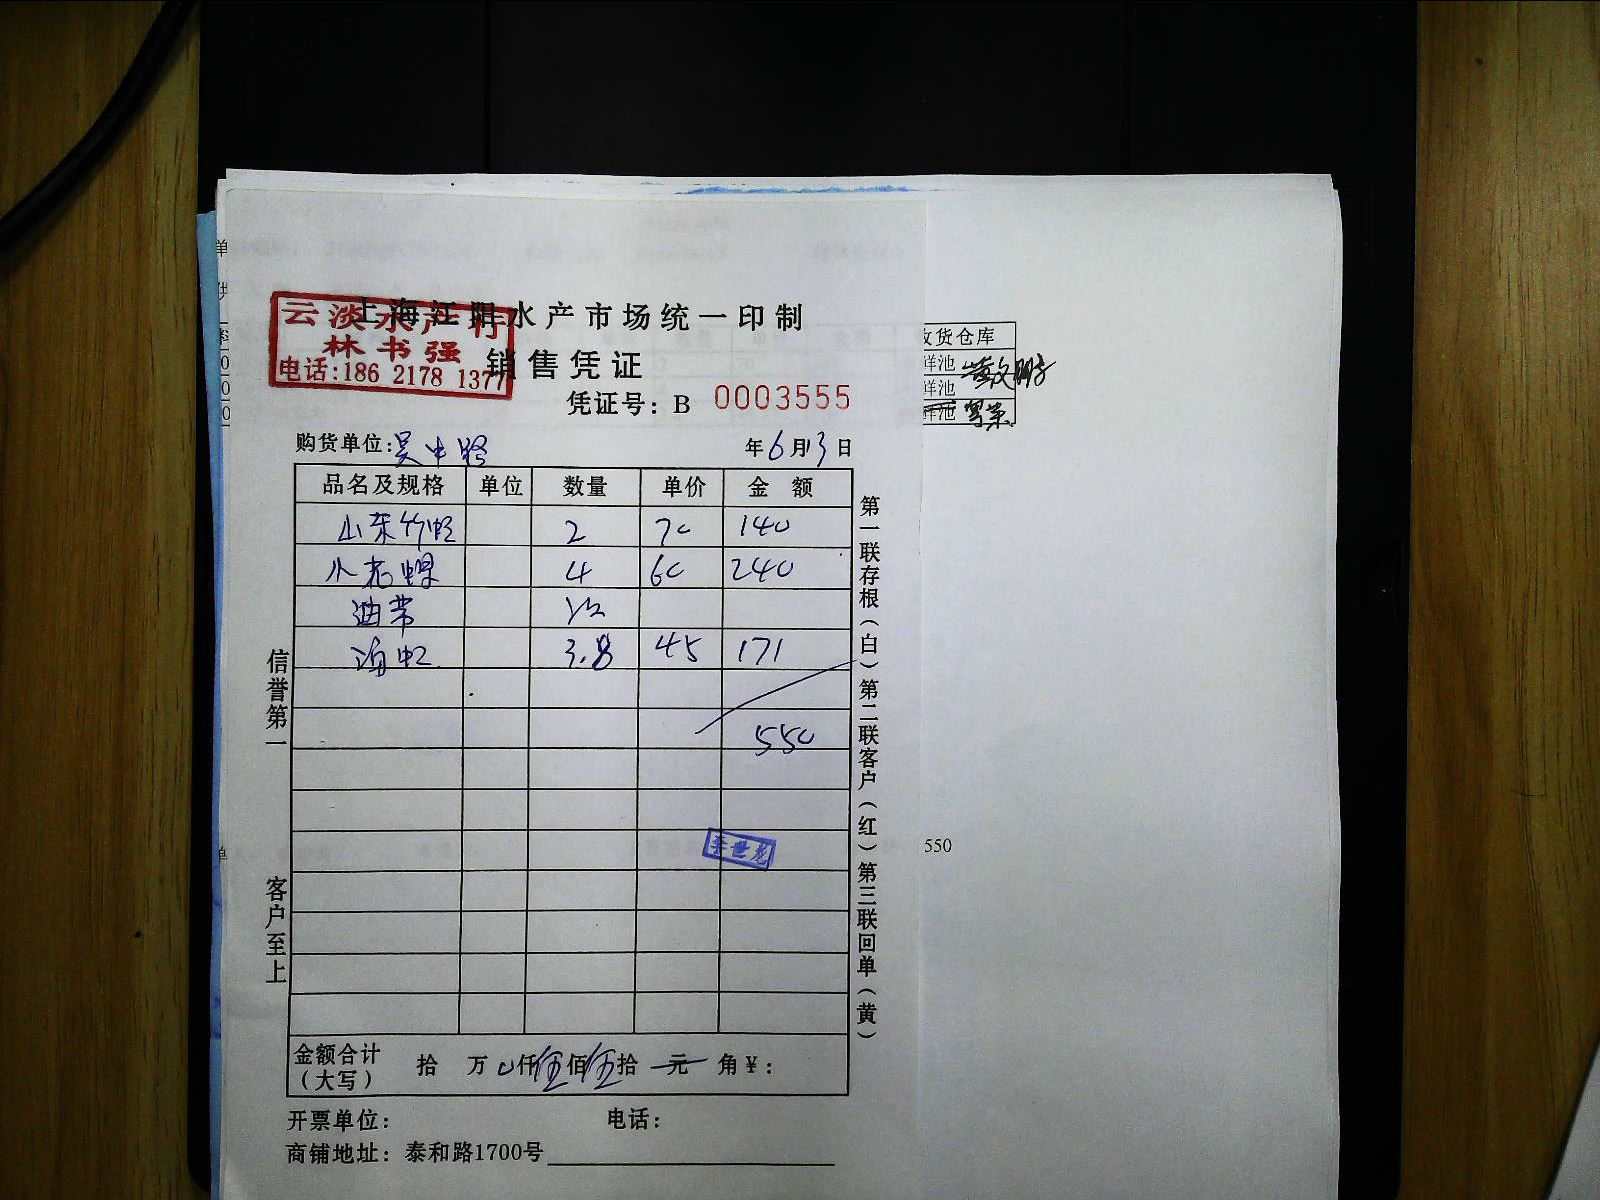 上海江阳水产市场统一印制
云淡水产行
林书强
电话:186 2178 1377
销售凭证
凭证号: B 0003555
购货单位:吴中路 年6月3日
品名及规格 单位 数量 单价 金 额
山东竹蛏 2 70 140
小花螺 4 60 240
油带
海虹 3.8 45 171
550
李世龙
金额合计(大写) 拾 万 0仟伍佰伍拾 元 角¥:
开票单位: 电话:
商铺地址: 泰和路1700号
信誉第一 客户至上
第一联存根(白)第二联客户(红)第三联回单(黄)
收货仓库
鲜池
鲜池
鲜池
550
单
供
单